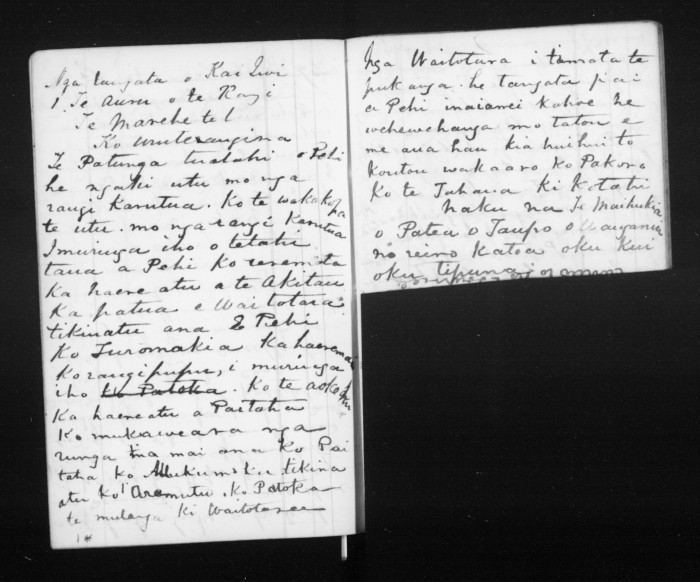 Nga tangata o Kai Iwi
1. Te Auru o te Rangi
Te Marehe te 1
Ko
Te Patunga tuatahi o Pehi
he ngaki utu mo nga
rangi Karutua. Ko te wakakapa
te utu. mo nga rangi Karutua
Imuruga iho o tetahi
taua a Pehi Ko
Ka haere atu a te Akitau
Ka patua e Waitotara.
tikinatu ana E Pehi
Ko Turomakia Ka haeremai
Korangipupu, i muringa
iho ko Patoka. Ko te
Ka haereatu a Paitaha
Ko mukaweara nga
runga ina mai ana Ko Pai
taha Ko tikina
atu ko Aramutu. Ko Patoka
te mutanga ki Waitotara
Nga Waitotara i tamata te
pukanga. he tangata pai
a Pehi inaianei kahore he
wehewehenga mo tatou e
me ana hau kia huihui to
koutou wakaaro ko Pakoro
Ko te Tahana ki Kotahi
naku na Te Maihukia
o Patea o Taupo o Wanganui
no reiro katoa oku Kui
oku tipuna